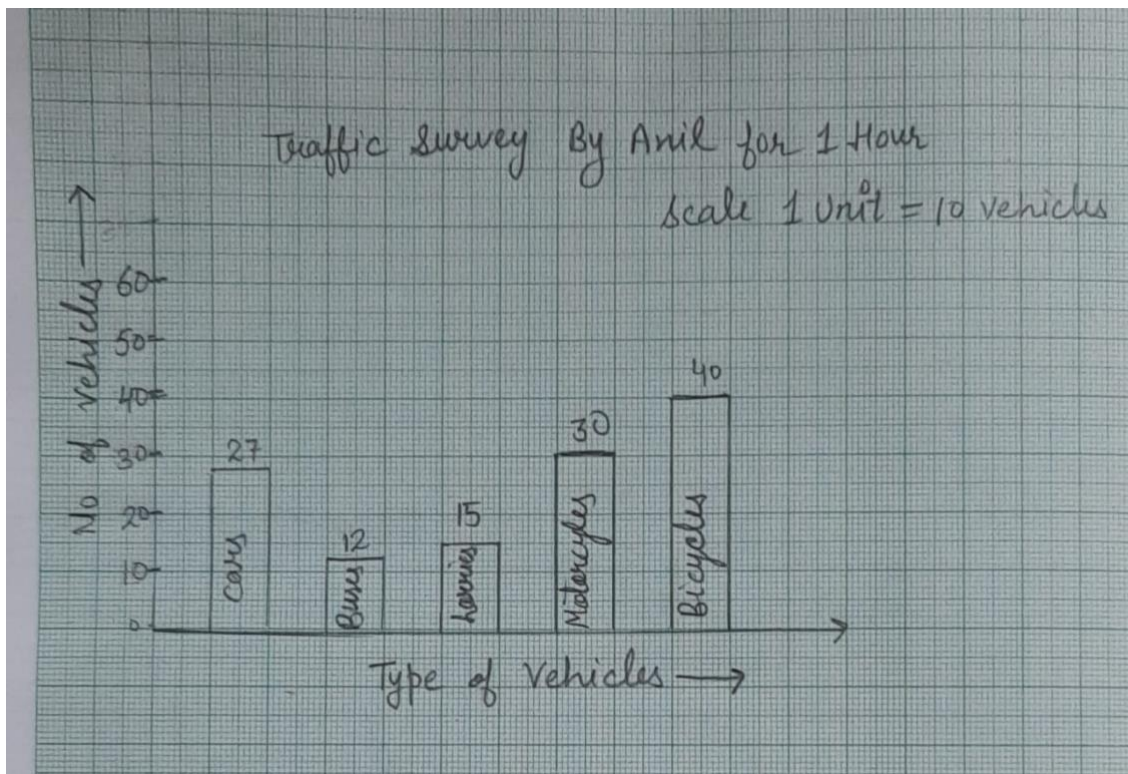 Traffic Survey By Anil for 1 Hour
Scale 1 Unit = 10 vehicles
No of vehicles
60
50
40
30
20
10
0
27
12
15
30
40
Cars
Buses
Lorries
Motorcycles
Bicycles
Type of Vehicles